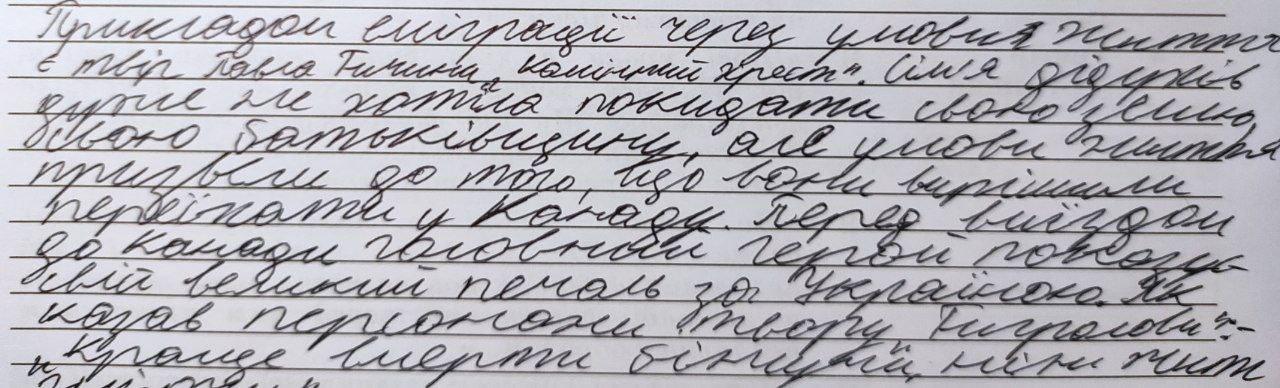 Прикладом еміграції через умови життя
є твір Павла Тичини „Камінний хрест". Сім'я дідухів
дуже не хотіла покидати свою землю,
свою батьківщину, але умови життя
призвели до того, що вони вирішили
переїхати у Канаду. Перед виїздом
до Канади головний герой показує
свій великий печаль за Україною. Як
казав персонажи твору Тигролови"-
„Краще вмерти біжучи, ніж жити